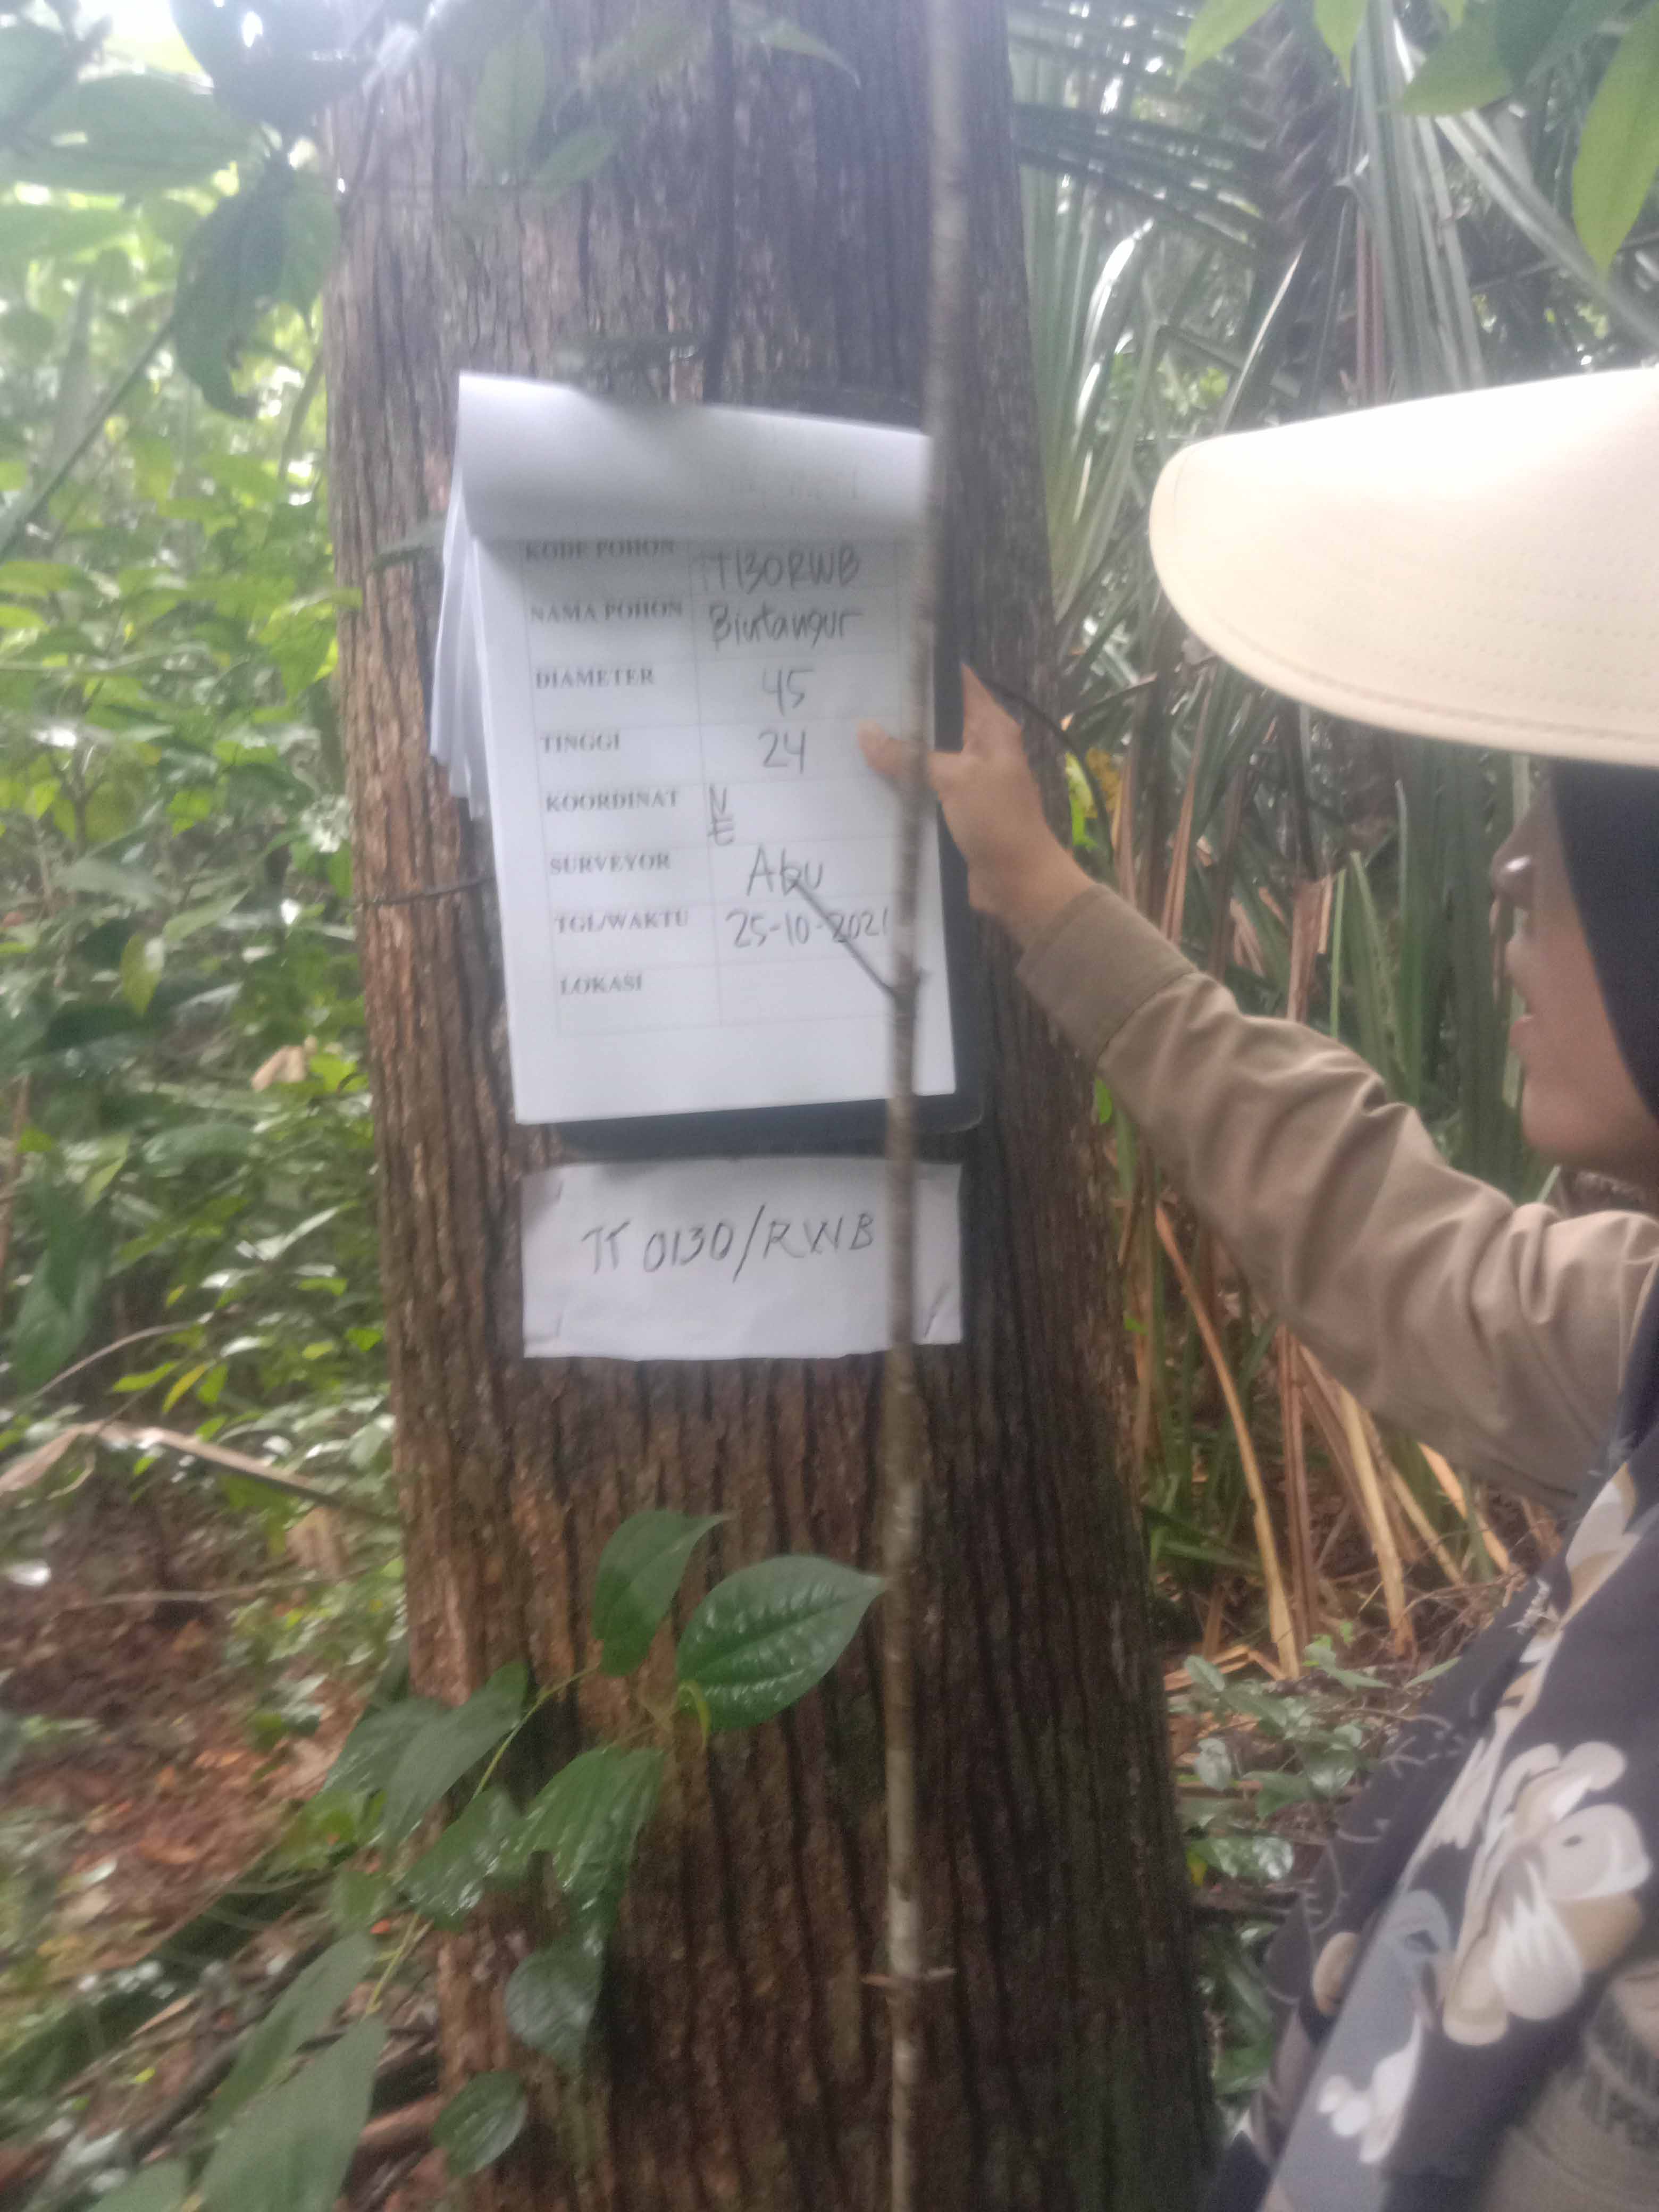 KODE POHON TT130RWB
NAMA POHON Bintangur
DIAMETER 45
TINGGI 24
KOORDINAT N
E
SURVEYOR Abu
TGL/WAKTU 25-10-2021
LOKASI
TT 0130/RWB